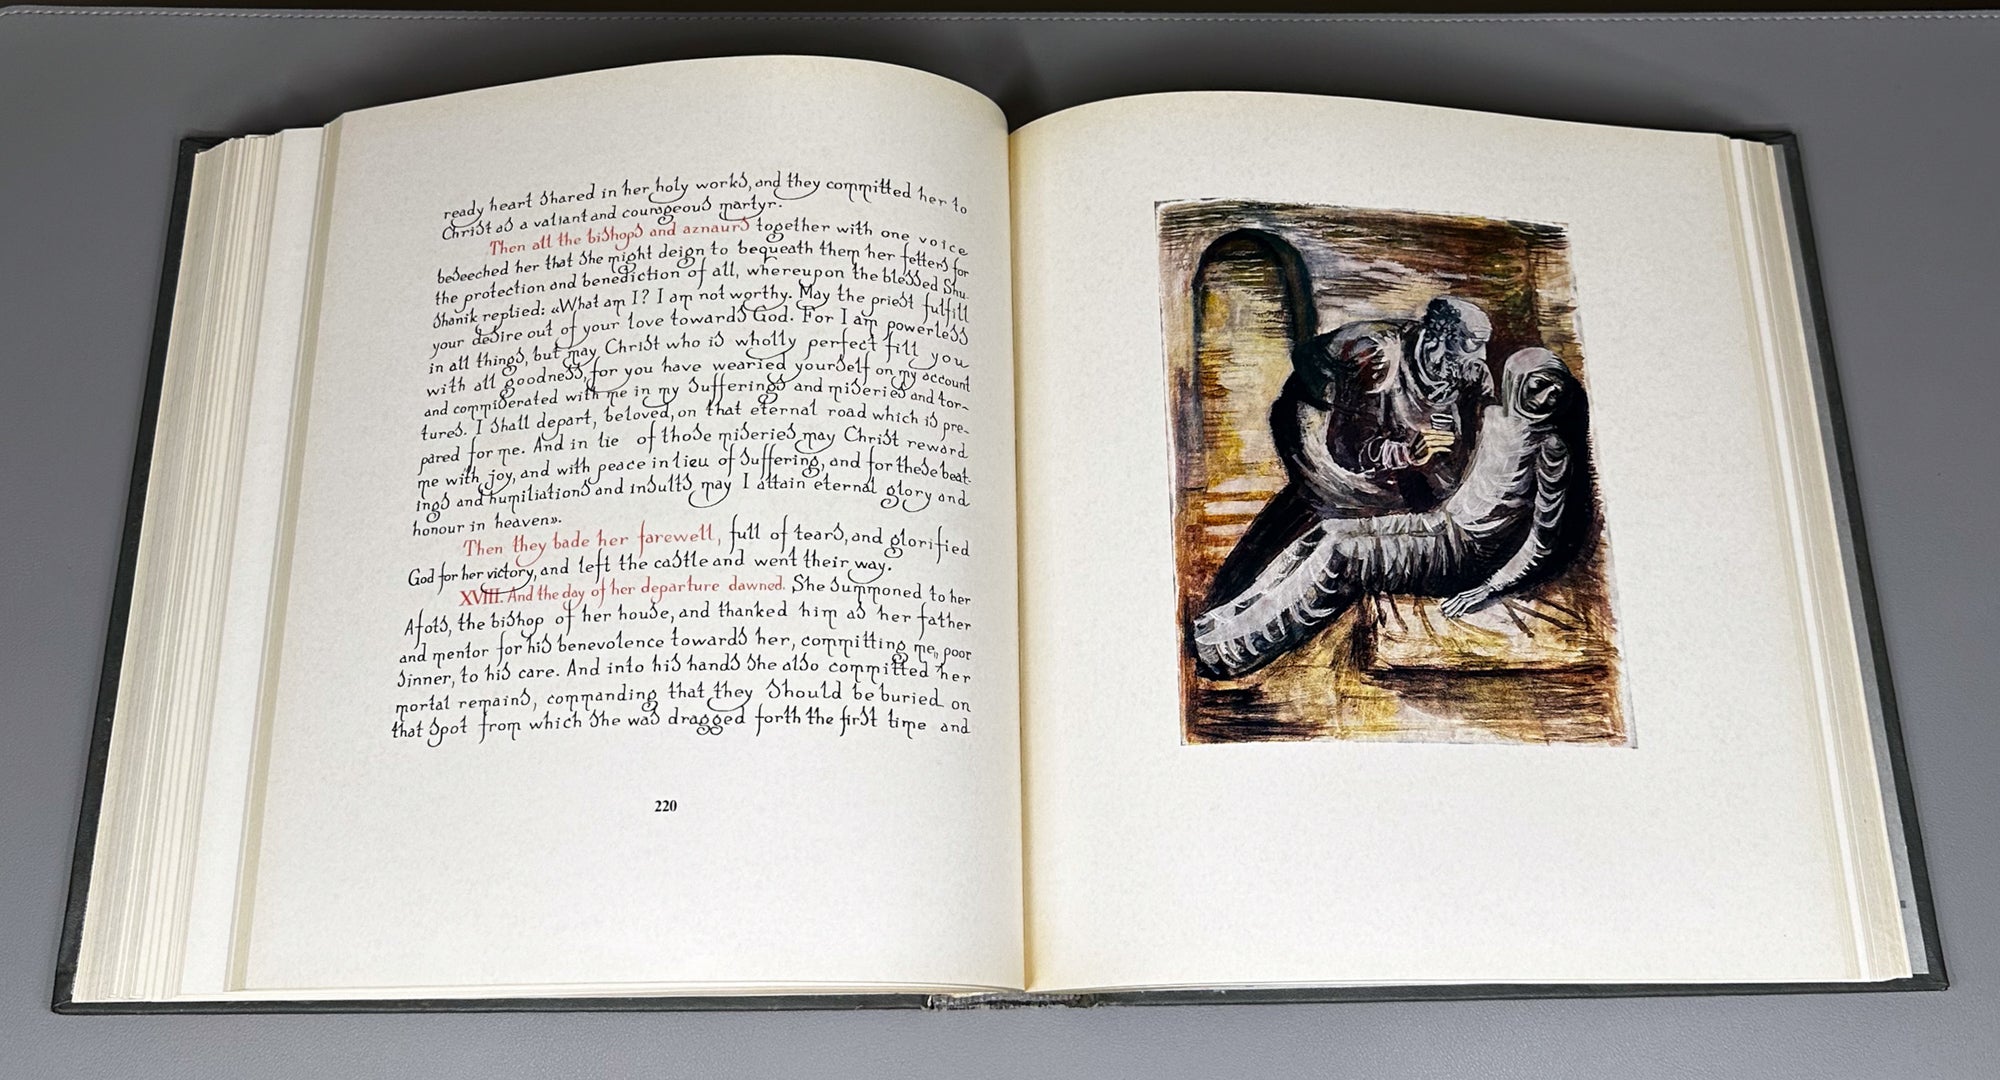 ready heart shared in her holy works, and they committed her to
Christ as a valiant and courageous martyr.
Then all the bishops and aznaurs together with one voice
beseeched her that she might deign to bequeath them her fetters for
the protection and benediction of all, whereupon the blessed Shu-
shanik replied: «What am I? I am not worthy. May the priest fulfill
your desire out of your love towards God. For I am powerless
in all things, but may Christ who is wholly perfect fill you
with all goodness, for you have wearied yourself on my account
and commiserated with me in my sufferings and miseries and tor-
tures. I shall depart, beloved, on that eternal road which is pre-
pared for me. And in lie of those miseries may Christ reward
me with joy, and with peace in lieu of suffering, and for these beat-
ings and humiliations and insults may I attain eternal glory and
honour in heaven».
Then they bade her farewell, full of tears, and glorified
God for her victory, and left the castle and went their way.
XVIII. And the day of her departure dawned. She summoned to her
Afots, the bishop of her house, and thanked him as her father
and mentor for his benevolence towards her, committing me, poor
sinner, to his care. And into his hands she also committed her
mortal remains, commanding that they should be buried on
that spot from which she was dragged forth the first time and
220